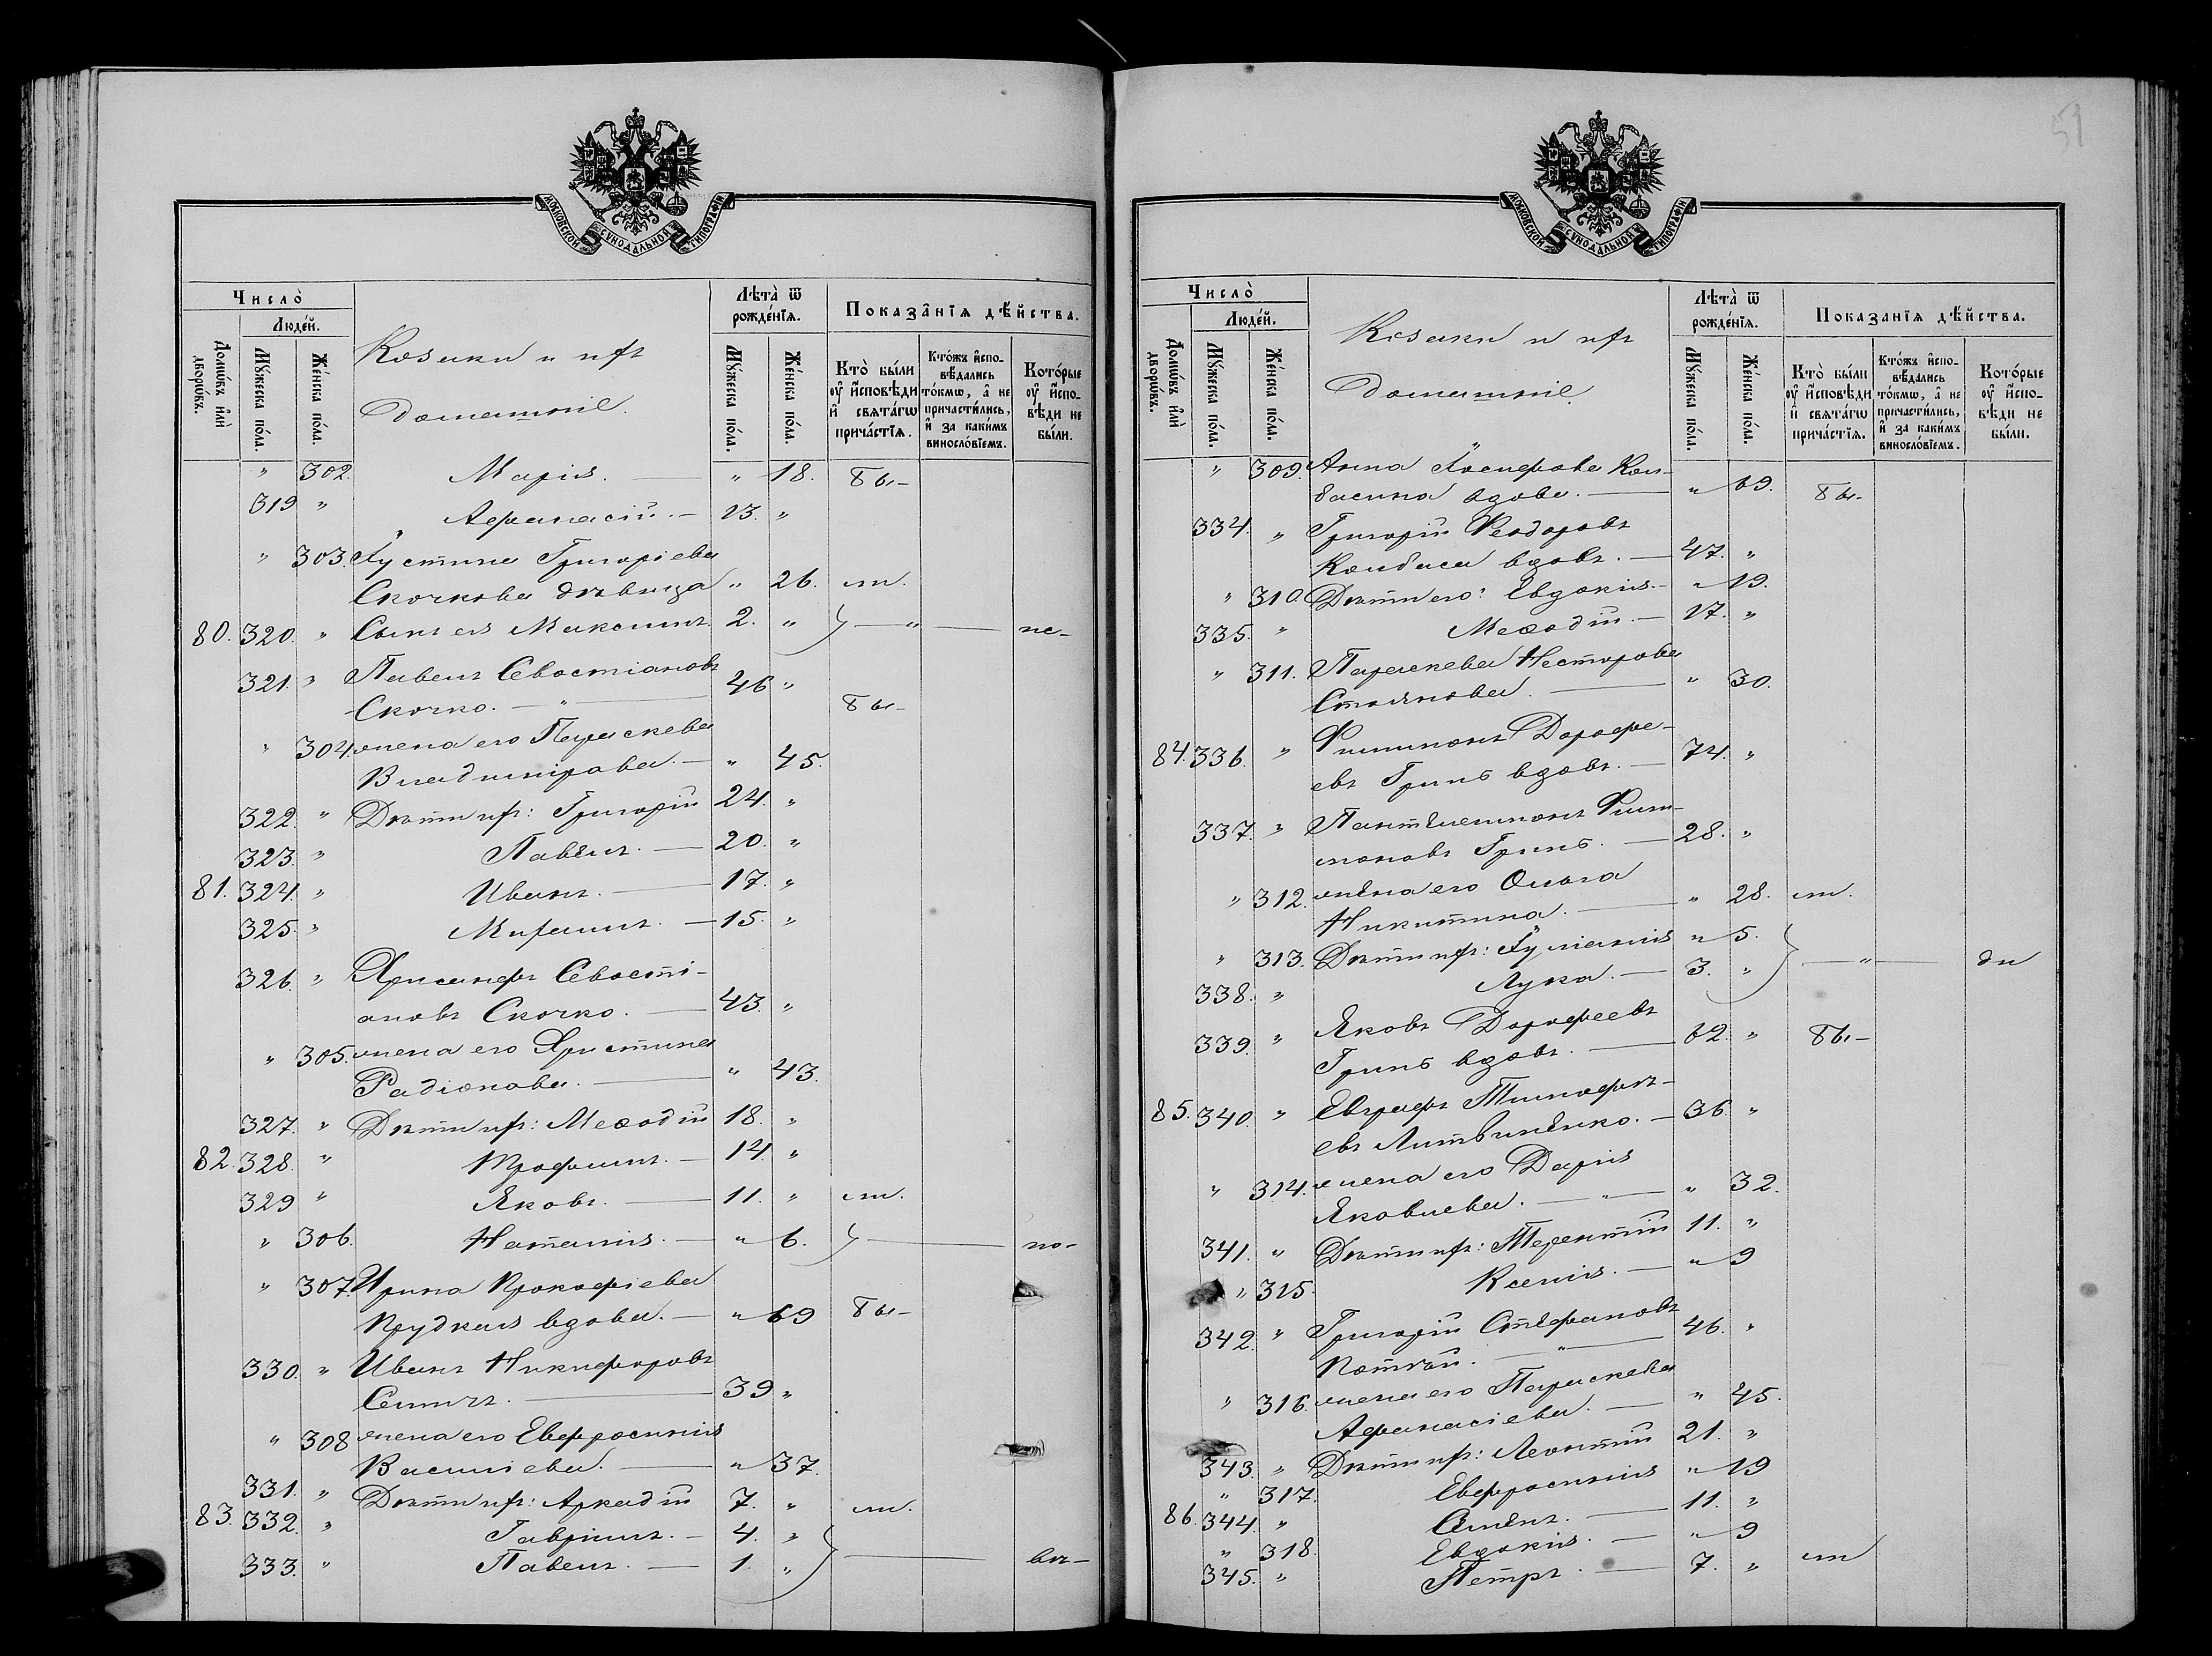 МОСКОВСКОЙ СУНОДАЛЬНОЙ ТИПОГРАФІИ
Число̀
Людéй.
Домѡ́въ и҆лѝ дворѡ́въ.
Мꙋ́жеска по́ла.
Жéнска по́ла.
Козаки и ихъ
домашніе.
Лѣта̀ ѿ рождéнїѧ.
Мꙋ́жеска по́ла.
Жéнска по́ла.
Показа̂нїѧ дѣ́йства.
Кто̀ бы́ли ᲂу҆ и҆сповѣ́ди и҆ свѧта́гѡ прича́стїѧ.
Кто́жъ и҆спо-
вѣ́дались
то́кмѡ, а҆ не
причасти́лись,
и҆ за каки́мъ
винослóвїемъ.
Кото́рые
ᲂу҆ и҆спо-
вѣ́ди не
бы́ли.
" 302. Марія. — " 18. бы-
319 " Афанасій. — 13. "
" 303. Іустина Григоріева
Скочкова дѣвица " 26. ли.
80. 320. " Сынъ ея Максимъ. 2. " — " — не-
321. " Павелъ Севостіановъ
Скочко. — " — 46 " бы-
" 304. жена его Параскева
Владимірова. — " 45.
322. " Дѣти ихъ: Григорій 24. "
323. " Павелъ. — 20. "
81. 324. " Иванъ. — 17. "
325. " Михаилъ. — 15. "
326. " Хрисанфъ Севасті-
ановъ Скочко. — 43. "
" 305. жена его Христина
Радіонова. — " 43.
327. " Дѣти ихъ: Меѳодій 18. "
82. 328. " Трофимъ. — 14. "
329 " Яковъ. — 11. " ли.
" 306. Наталія. — " 6. — по-
" 307. Ирина Прокофіева
Прудкая вдова. — " 69 бы-
330. " Иванъ Никифоровъ
Семичъ. — 39 "
" 308 жена его Евфросинія
Василіева. — " 37.
331. " Дѣти ихъ: Аркадій 7. " ли.
83. 332. " Гавріилъ. — 4. "
333. " Павелъ. — 1. " — вѣ-
51
МОСКОВСКОЙ СУНОДАЛЬНОЙ ТИПОГРАФІИ
Число̀
Людéй.
Домѡ́въ и҆лѝ дворѡ́въ.
Мꙋ́жеска по́ла.
Жéнска по́ла.
Козаки и ихъ
домашніе
Лѣта̀ ѿ рождéнїѧ.
Мꙋ́жеска по́ла.
Жéнска по́ла.
Показа̂нїѧ дѣ́йства.
Кто̀ бы́ли ᲂу҆ и҆сповѣ́ди и҆ свѧта́гѡ прича́стїѧ.
Кто́жъ и҆спо-
вѣ́дались
то́кмѡ, а҆ не
причасти́лись,
и҆ за каки́мъ
винослóвїемъ.
Кото́рые
ᲂу҆ и҆спо-
вѣ́ди не
бы́ли.
" 309. Анна Іосифова Кол-
басина вдова. — " 69. бы-
334. " Григорій Феодоровъ
Колбаса вдовъ. — 47. "
" 310. Дѣти его: Евдокія. — " 19.
335. " Меѳодій. — 17. "
" 311. Параскева Несторова
Стоянова. — " 30.
84. 336. " Филимонъ Дорофе-
евъ Гринь вдовъ. — 74. "
337. " Пантелеимонъ Фили-
моновъ Гринь. — 28. "
" 312. жена его Ольга
Никитина. — " 28. ли.
" 313. Дѣти ихъ: Іуліанія " 5.
338. " Лука. — 3. " — " — ди
339. " Яковъ Дорофеевъ
Гринь вдовъ. — 62. " бы-
85. 340. " Евграфъ Тимофѣ-
евъ Литвиненко. — 36. "
" 314. жена его Дарія
Яковлева. — " — " 32.
341. " Дѣти ихъ: Терентій 11. "
" 315. Ксенія. — " 9
342. " Григорій Стефановъ
Потѣй. — " — 46. "
" 316. жена его Параскева
Афанасіева. — " 45.
343. " Дѣти ихъ: Леонтій 21. "
" 317. Евфросинія " 19
86. 344. " Семенъ. — 11. "
" 318. Евдокія. — " 9
345. " Петръ. — 7. " ли